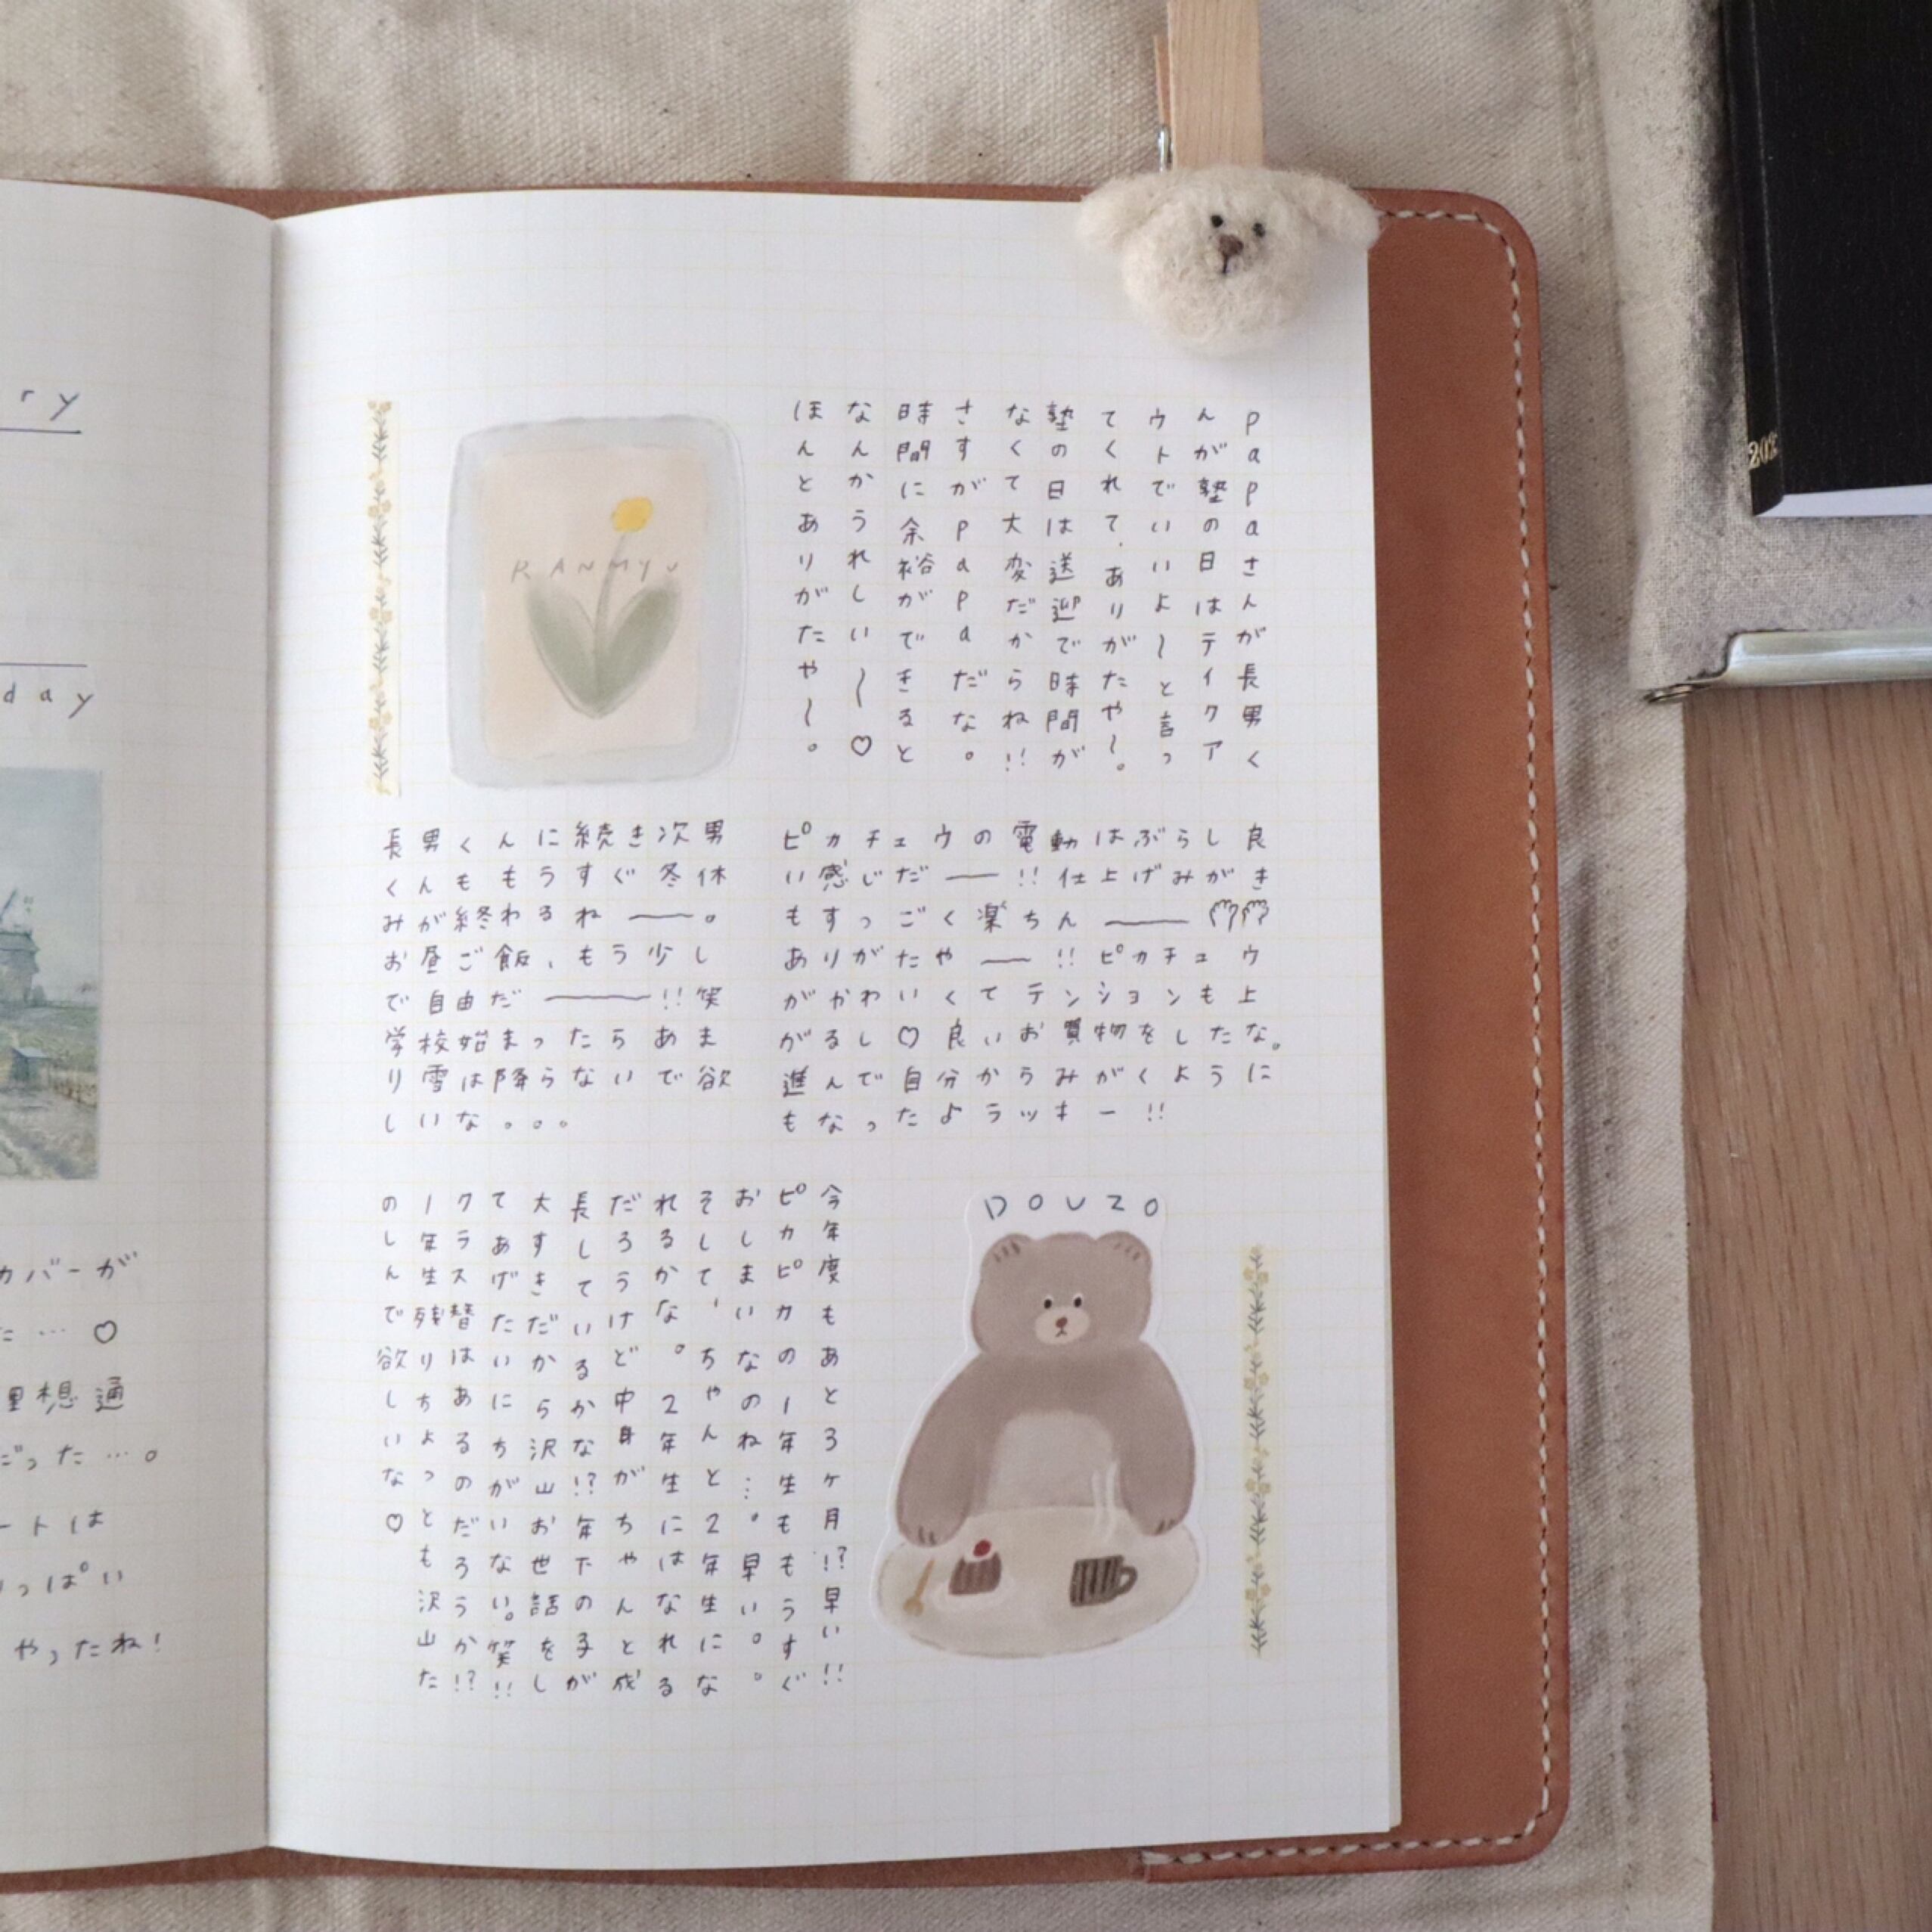 ry
day
カバーが
た…♡
想通
だった…。
ートは
っぱい
やったね！
papaさんが長男く
んが塾の日はテイクア
ウトでいいよ～と言っ
てくれて、ありがたや～。
塾の日は送迎で時間が
なくて大変だからね!!
さすがpapaだな。
時間に余裕ができると
なんかうれしい～♡
ほんとありがたや～。
RANMYU
長男くんに続き次男
くんももうすぐ冬休
みが終わるね――。
お昼ご飯、もう少し
で自由だ――!!笑
学校始まったらあま
り雪は降らないで欲
しいな。。。
ピカチュウの電動はぶらし良
い感じだ――!!仕上げみがき
もすっごく楽ちん――
ありがたや――!!ピカチュウ
がかわいくてテンションも上
がるし♡良いお買物をしたな。
進んで自分からみがくように
もなったよラッキー!!
今年度もあと3ヶ月!?早い!!
ピカピカの1年生ももうすぐ
おしまいなのね…。早い。。
そして、ちゃんと2年生にな
れるかな。2年生にはなれる
だろうけど中身がちゃんと成
長しているかな!?年下の子が
大すきだから沢山お世話をし
てあげたいにちがいない。笑!!
クラス替はあるのだろうか!?
1年生残りちょっとも沢山た
のしんで欲しいな♡
DOUZO
202